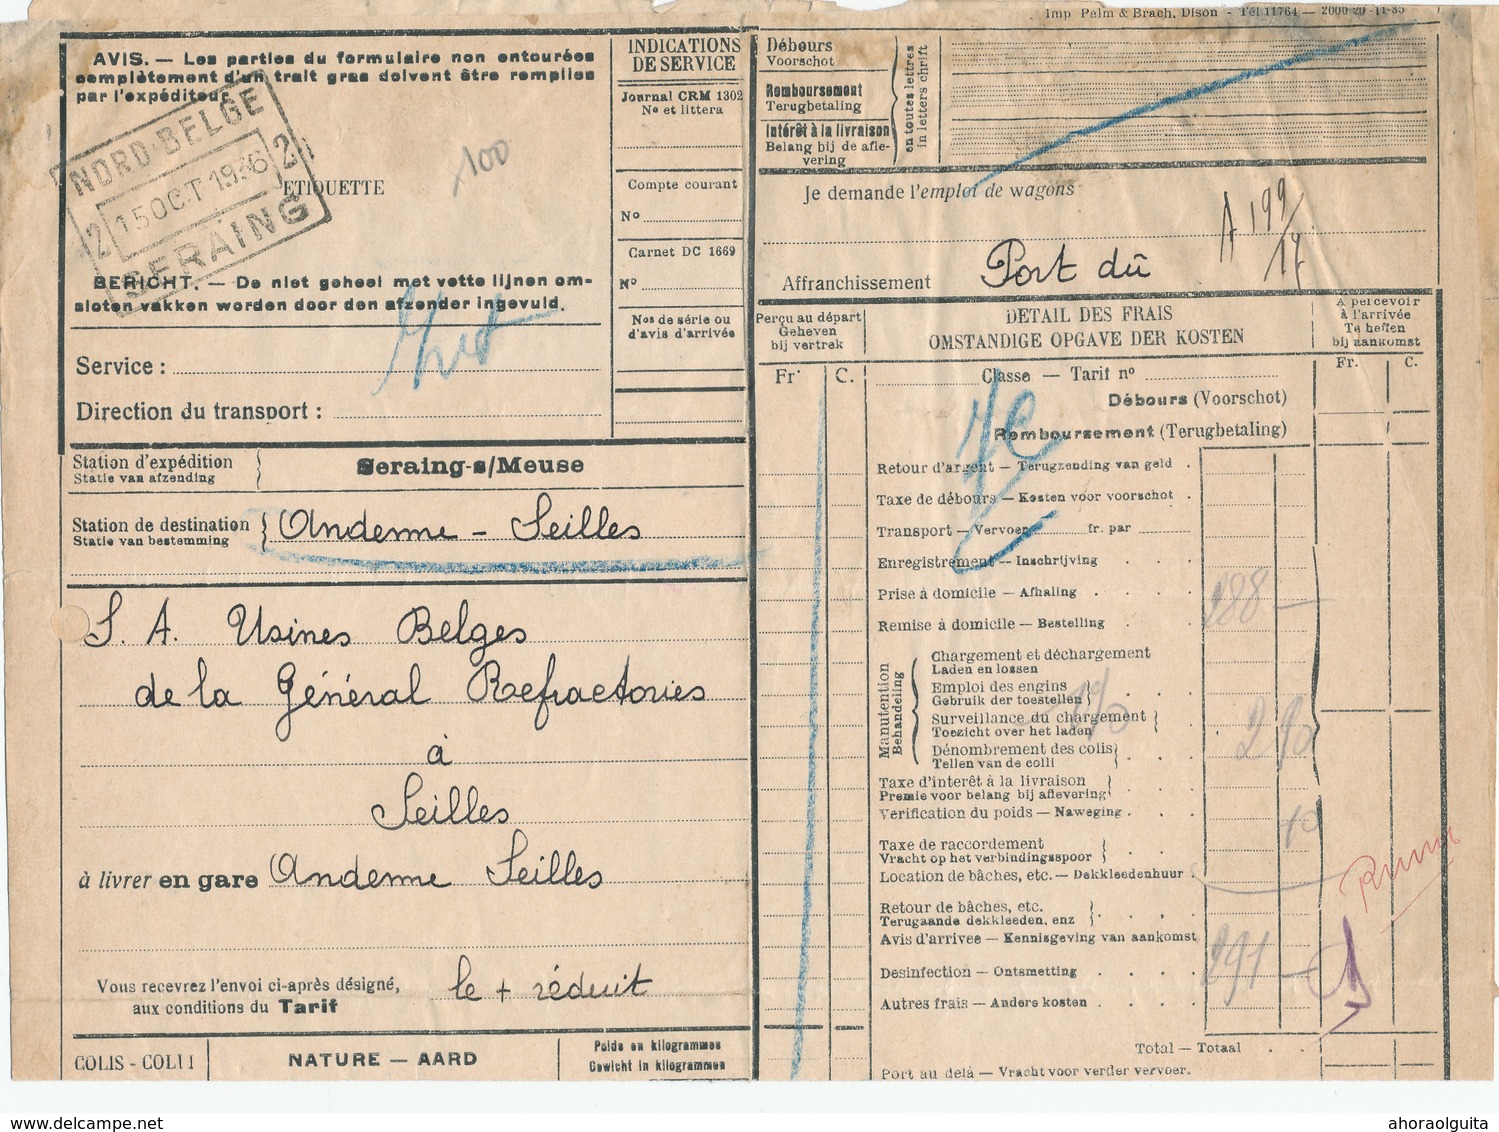 Imp Palm & Brach, Dison - Tél 11764 — 2000 20-11-35
AVIS. — Les parties du formulaire non entourées
complètement d'un trait gras doivent être remplies
par l'expéditeur.
NORD-BELGE
2 15 OCT 1936 2
SERAING
ETIQUETTE
100
BERICHT. — De niet geheel met vette lijnen om-
sloten vakken worden door den afzender ingevuld.
Service :
Direction du transport :
INDICATIONS
DE SERVICE
Journal CRM 1302
No et littera
Compte courant
No
Carnet DC 1669
No
Nos de série ou
d'avis d'arrivée
Station d'expédition
Statie van afzending
Seraing-s/Meuse
Station de destination
Statie van bestemming
Andenne - Seilles
S. A. Usines Belges
de la Général Refractories
à
Seilles
à livrer en gare Andenne Seilles
Vous recevrez l'envoi ci-après désigné,
aux conditions du Tarif
le + réduit
COLIS - COLLI
NATURE — AARD
Poids en kilogrammes
Gewicht in kilogrammen
Débours
Voorschot
Remboursement
Terugbetaling
Intérêt à la livraison
Belang bij de afle-
vering
en toutes lettres
in letters chrift
Je demande l'emploi de wagons
A 199/17
Affranchissement
Port dû
Perçu au départ
Geheven
bij vertrek
DETAIL DES FRAIS
OMSTANDIGE OPGAVE DER KOSTEN
A percevoir
à l'arrivée
Te heffen
bij aankomst
Fr. C.
Classe — Tarif no
Fr. C.
Débours (Voorschot)
Remboursement (Terugbetaling)
Retour d'argent — Terugzending van geld
Taxe de débours — Kosten voor voorschot
Transport — Vervoer fr. par
Enregistrement — Inschrijving
Prise à domicile — Afhaling
288 —
Remise à domicile — Bestelling
Manutention
Behandeling
Chargement et déchargement
Laden en lossen
Emploi des engins
Gebruik der toestellen
Surveillance du chargement
Toezicht over het laden
1%
290
Dénombrement des colis
Tellen van de colli
Taxe d'interêt à la livraison
Premie voor belang bij aflevering
Verification du poids — Naweging
10
Taxe de raccordement
Vracht op het verbindingsspoor
Location de bâches, etc. — Dekkleedenhuur
Retour de bâches, etc.
Terugaande dekkleeden, enz
Avis d'arrivee — Kennisgeving van aankomst
291 —
Desinfection — Ontsmetting
Autres frais — Andere kosten
Total — Totaal
Port au delà — Vracht voor verder vervoer.
ahoraolguita
www.delcampe.net